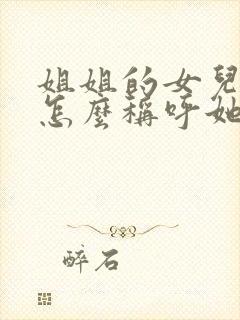 姐姐的女兒
怎麼稱呼她
醉石